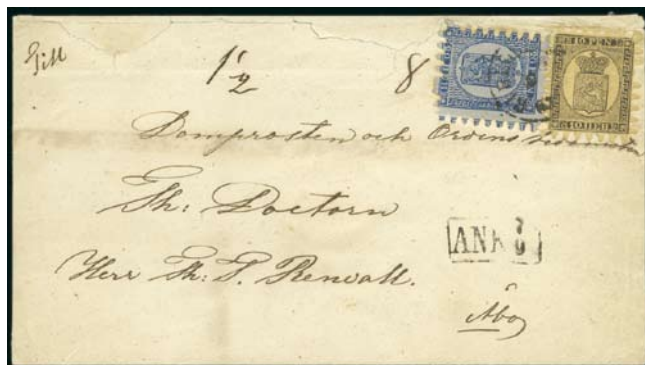 Till
1½ 8
10 PEN:
Domprosten och Ordens
Th: Doctorn
ANK
Herr Th: P. Renvall.
Åbo